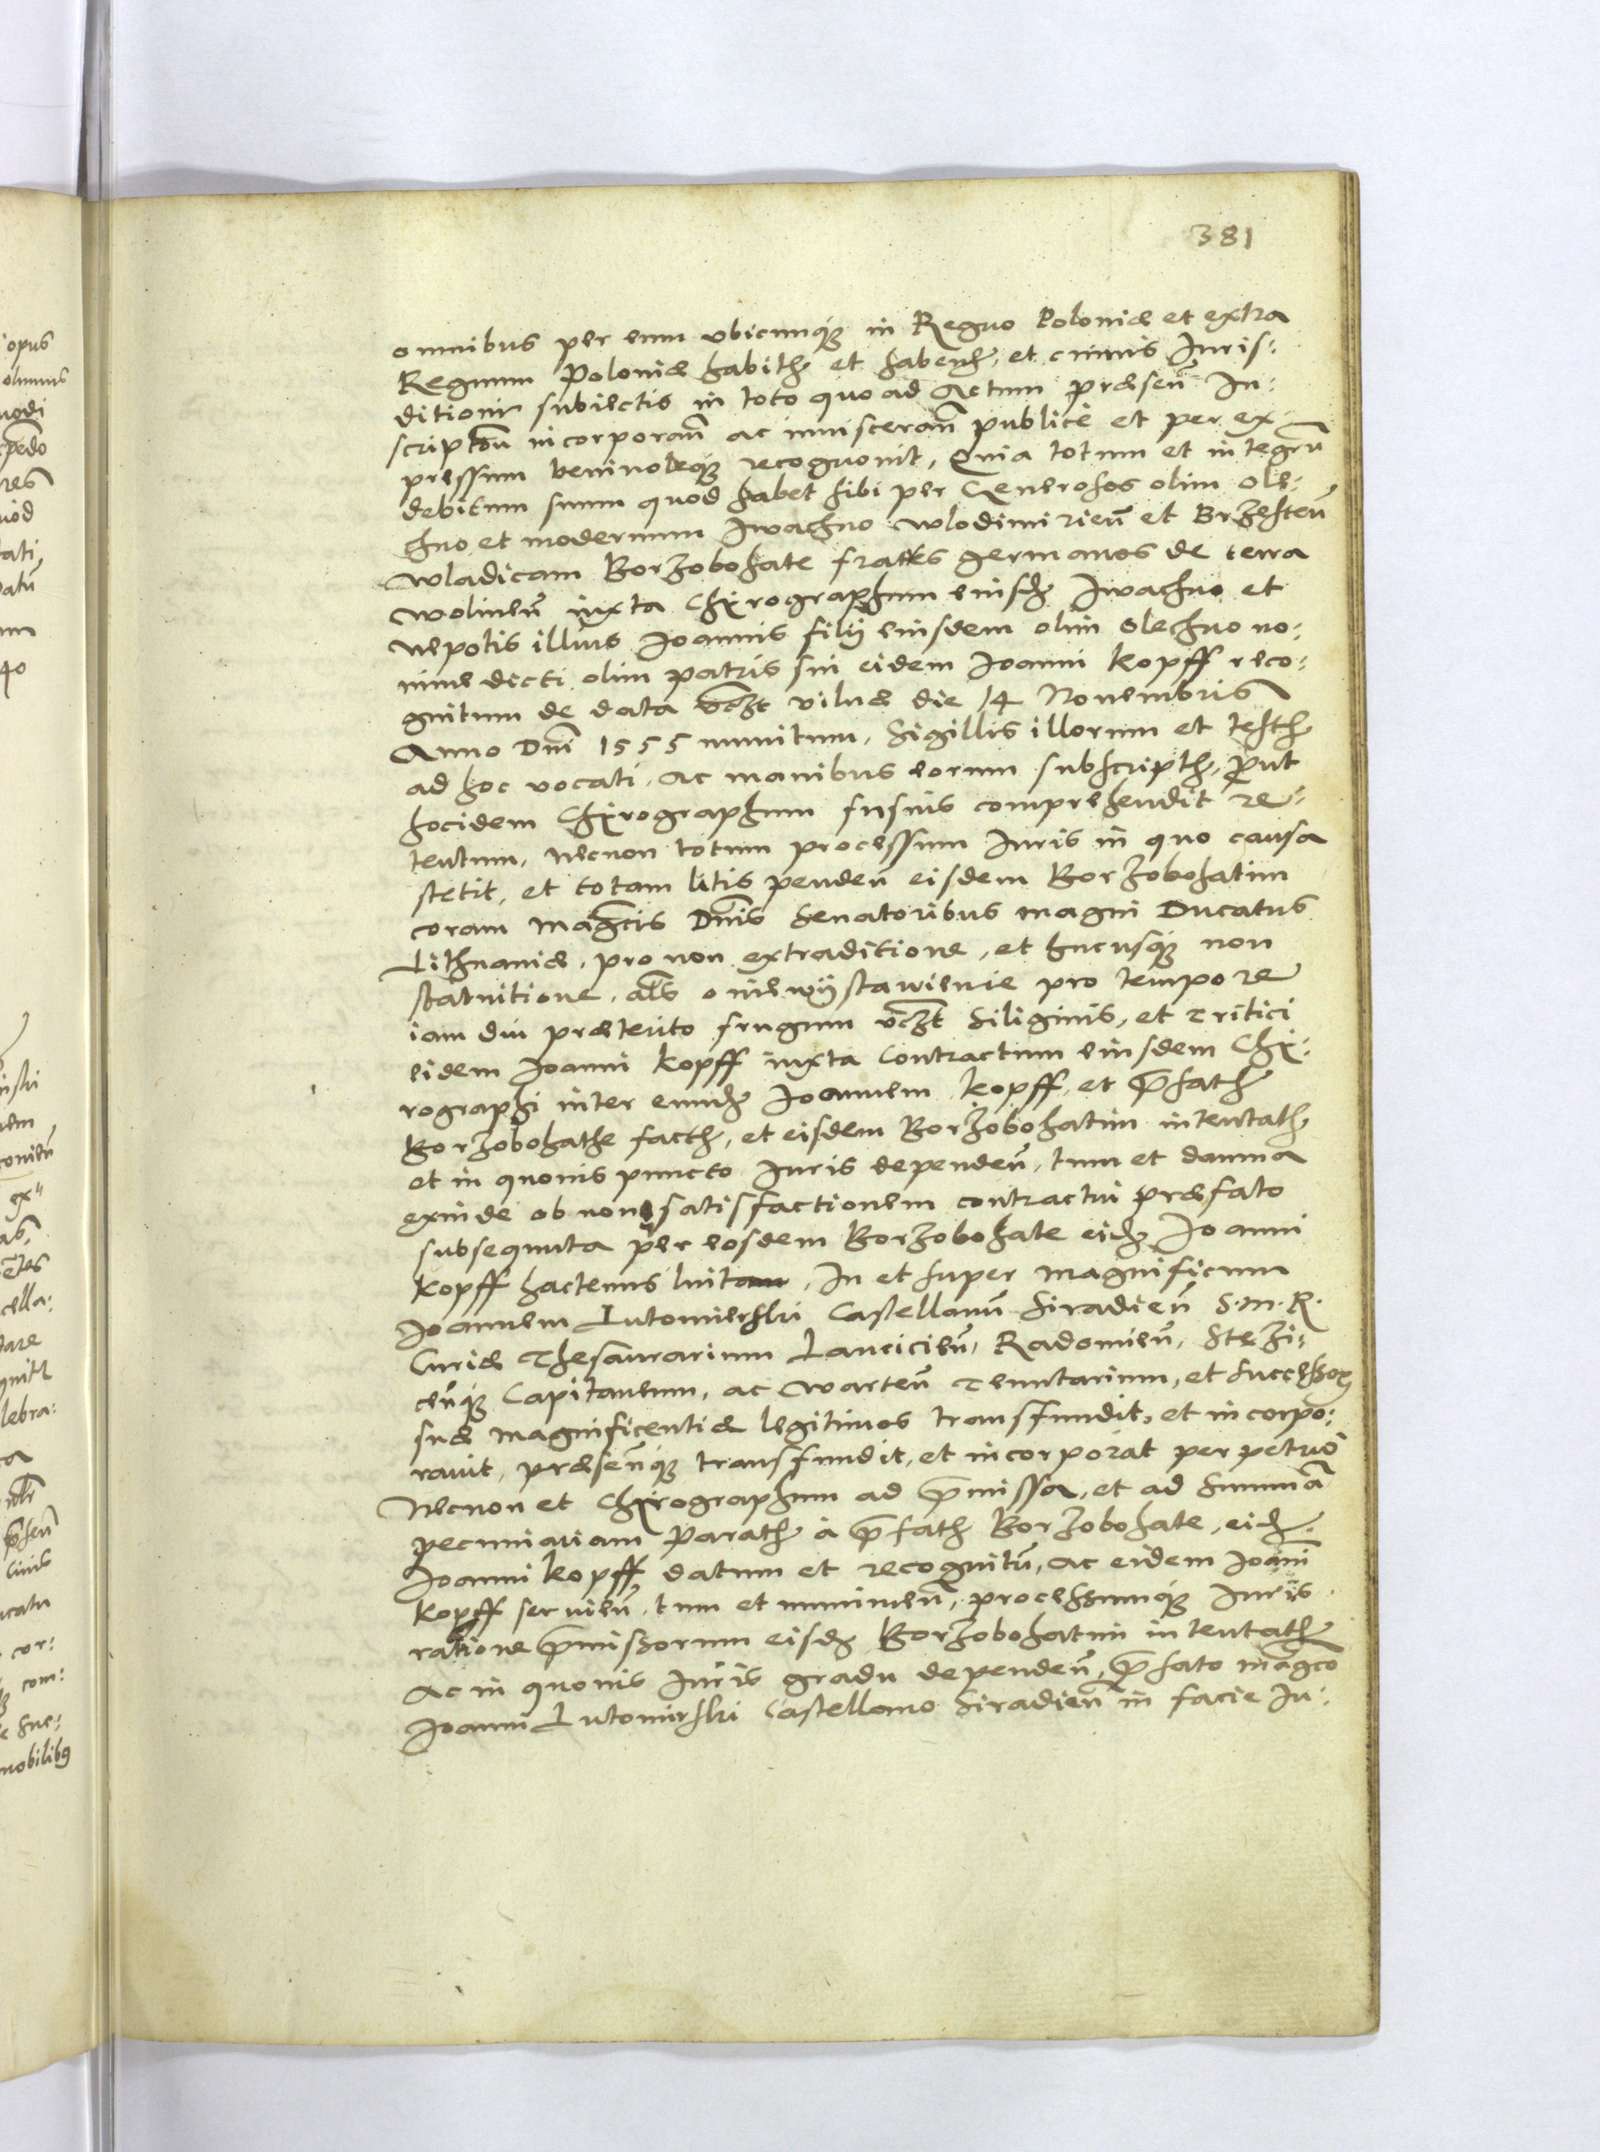 381
omnibus per eum vbicunq3 in Regno Poloniæ et extra
Regnum Poloniæ habitħ et habenđ, et cuiuis Iuris:
ditioni subiectis in toto quo ad Actum præseñ In:
scriptoũ incorporañ ac inuisceran̄ publicè et per ex:
pressum beniuoleq3 recognouit, Quia totum et integrũ
debitum suum quod habet sibi per Generosos olim Ole:
chno et modernum Iwachno Wlodimirieñ et Brzesteñ
Wladicam Borzobohate fratres germanos de terra
Wolineñ iuxta Chirographum eiusđ Iwachno et
nepotis illius Joannis filij eiusdem olim Olechno no:
mine dicti olim patris sui eidem Joanni Kopff reco:
gnitum de data vc3t Vilnæ die 14 Nouembris
Anno Dnī 1555 munitum, Sigillis illorum et testħ
ad hoc vocati, ac manibus eorum subscriptħ, put
hocidem Chirographum fusius comprehendit re:
tentum, necnon totum processum Iuris in quo causa
stetit, et totam litis penden̄ eisdem Borzobohatim
coram Mag̃cis Dnīs Senatoribus magni Ducatus
Lithuaniæ, pro non extraditione, et hucusq3 non
statuitione, als o niewijstawienie pro tempore
iam diu præterito frugum vc3t Siliginis, et Tritici
eidem Joanni Kopff iuxta Contractum eiusdem Chi:
rographi inter eunđ Joannem Kopff, et p̄fatħ
Borzobohathe factħ, et eisdem Borzobohatim intentatħ
et in quouis puncto Iuris dependeñ, tum et damna
exinde ob non satisfactionem contractui præfato
subsequuta per eosdem Borzobohate eiđ Joanni
Kopff hactenus luita. In et super Magnificum
Joannem Lutomierski Castellanũ Siradieñ S. M. R.
Curiæ Thesaurarium Lancicieñ, Radomieñ, Stezi:
ceñq3 Capitaneum, ac Warteñ Tenutarium, et Successor
suæ Magnificentiæ legitimos transfundit, et incorpo:
rauit, præsen̄q3 transfundit, et incorporat perpetuò
Necnon et Chirographum ad p̄missa, et ad Summã
pecuniariam paratħ à p̄fatħ Borzobohate, eiđ
Joanni Kopff datum et recognitũ, ac eidem Joanni
Kopff seruieñ, tum et munimeñ, processumq3 Iuris
ratione p̄missorum eisđ Borzobohatim intentatħ
Ac in quouis Iuris gradu dependeñ, p̄fato Mag̃co
Joanni Lutomirski Castellano Siradieñ in facie Iu: